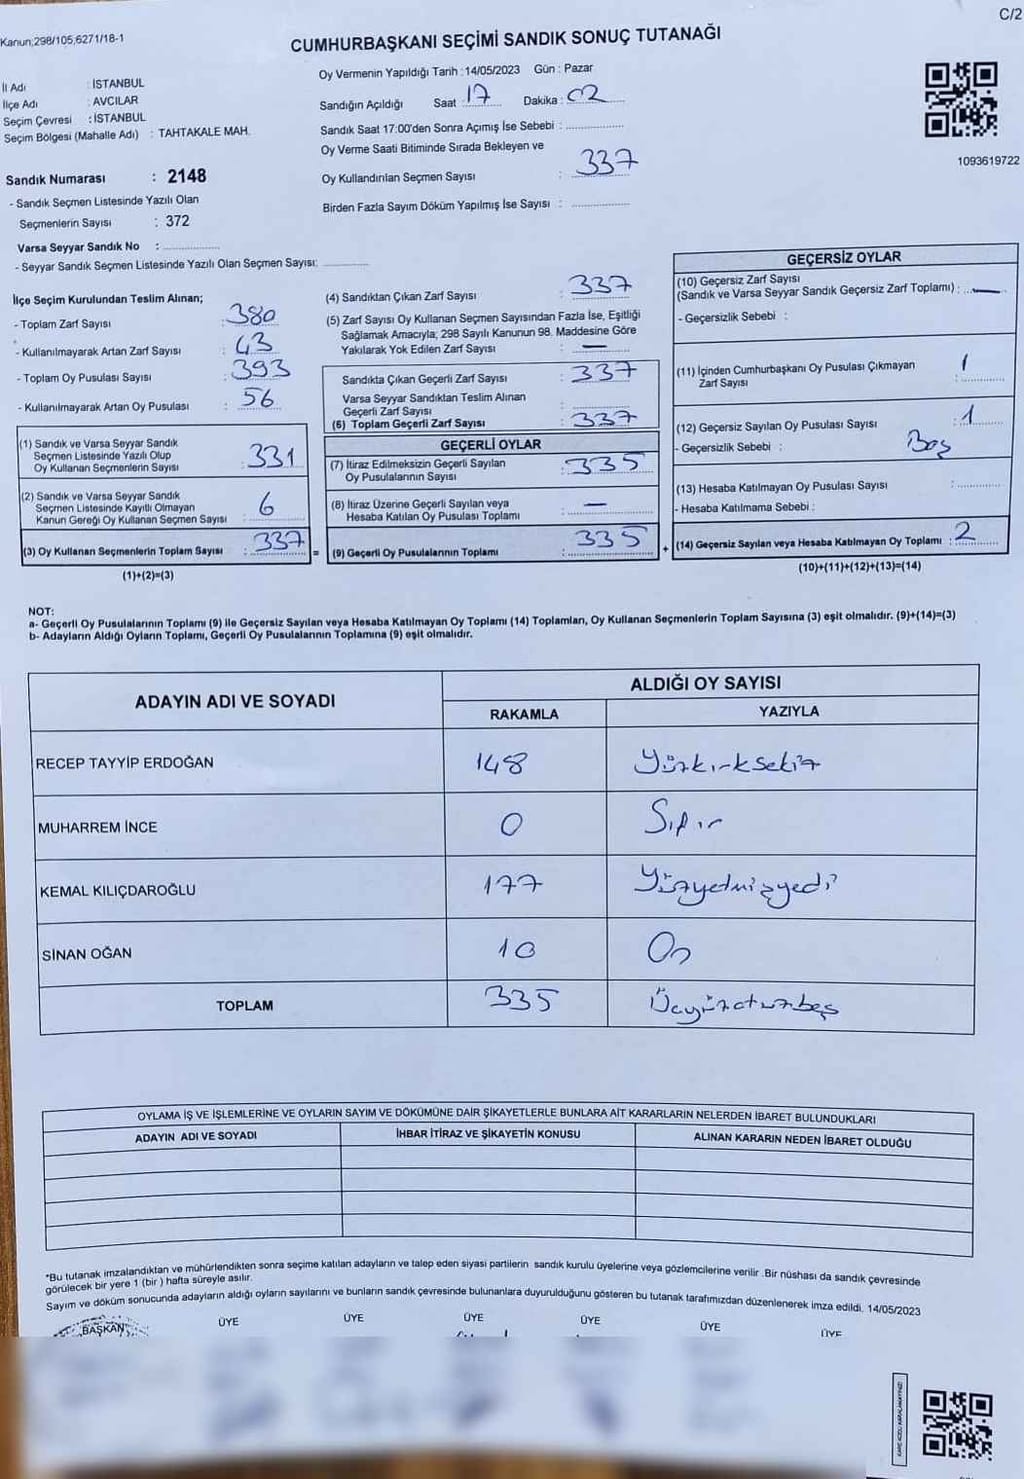 C/2
Kanun;298/105;6271/18-1
CUMHURBAŞKANI SEÇİMİ SANDIK SONUÇ TUTANAĞI
İl Adı : İSTANBUL
İlçe Adı : AVCILAR
Seçim Çevresi : İSTANBUL
Seçim Bölgesi (Mahalle Adı) : TAHTAKALE MAH.
Sandık Numarası : 2148
- Sandık Seçmen Listesinde Yazılı Olan
Seçmenlerin Sayısı : 372
Varsa Seyyar Sandık No :
- Seyyar Sandık Seçmen Listesinde Yazılı Olan Seçmen Sayısı:
Oy Vermenin Yapıldığı Tarih : 14/05/2023 Gün : Pazar
Sandığın Açıldığı Saat : 17 Dakika : 02
Sandık Saat 17:00'den Sonra Açımış İse Sebebi :
Oy Verme Saati Bitiminde Sırada Bekleyen ve
Oy Kullandırılan Seçmen Sayısı : 337
Birden Fazla Sayım Döküm Yapılmış İse Sayısı :
1093619722
İlçe Seçim Kurulundan Teslim Alınan;
- Toplam Zarf Sayısı : 380
- Kullanılmayarak Artan Zarf Sayısı : 43
- Toplam Oy Pusulası Sayısı : 393
- Kullanılmayarak Artan Oy Pusulası : 56
(1) Sandık ve Varsa Seyyar Sandık
Seçmen Listesinde Yazılı Olup
Oy Kullanan Seçmenlerin Sayısı : 331
(2) Sandık ve Varsa Seyyar Sandık
Seçmen Listesinde Kayıtlı Olmayan
Kanun Gereği Oy Kullanan Seçmen Sayısı : 6
(3) Oy Kullanan Seçmenlerin Toplam Sayısı : 337 =
(1)+(2)=(3)
(4) Sandıktan Çıkan Zarf Sayısı : 337
(5) Zarf Sayısı Oy Kullanan Seçmen Sayısından Fazla İse, Eşitliği
Sağlamak Amacıyla; 298 Sayılı Kanunun 98. Maddesine Göre
Yakılarak Yok Edilen Zarf Sayısı : —
Sandıkta Çıkan Geçerli Zarf Sayısı : 337
Varsa Seyyar Sandıktan Teslim Alınan
Geçerli Zarf Sayısı :
(6) Toplam Geçerli Zarf Sayısı : 337
GEÇERLİ OYLAR
(7) İtiraz Edilmeksizin Geçerli Sayılan
Oy Pusulalarının Sayısı : 335
(8) İtiraz Üzerine Geçerli Sayılan veya
Hesaba Katılan Oy Pusulası Toplamı : —
(9) Geçerli Oy Pusulalarının Toplamı : 335 +
GEÇERSİZ OYLAR
(10) Geçersiz Zarf Sayısı
(Sandık ve Varsa Seyyar Sandık Geçersiz Zarf Toplamı) : —
- Geçersizlik Sebebi :
(11) İçinden Cumhurbaşkanı Oy Pusulası Çıkmayan
Zarf Sayısı : 1
(12) Geçersiz Sayılan Oy Pusulası Sayısı : 1
- Geçersizlik Sebebi : Boş
(13) Hesaba Katılmayan Oy Pusulası Sayısı :
- Hesaba Katılmama Sebebi :
(14) Geçersiz Sayılan veya Hesaba Katılmayan Oy Toplamı : 2
(10)+(11)+(12)+(13)=(14)
NOT:
a- Geçerli Oy Pusulalarının Toplamı (9) ile Geçersiz Sayılan veya Hesaba Katılmayan Oy Toplamı (14) Toplamları, Oy Kullanan Seçmenlerin Toplam Sayısına (3) eşit olmalıdır. (9)+(14)=(3)
b- Adayların Aldığı Oyların Toplamı, Geçerli Oy Pusulalarının Toplamına (9) eşit olmalıdır.
ADAYIN ADI VE SOYADI
ALDIĞI OY SAYISI
RAKAMLA YAZIYLA
RECEP TAYYİP ERDOĞAN 148 Yüzkırksekiz
MUHARREM İNCE 0 Sıfır
KEMAL KILIÇDAROĞLU 177 Yüzyetmişyedi
SİNAN OĞAN 10 On
TOPLAM 335 Üçyüzotuzbeş
OYLAMA İŞ VE İŞLEMLERİNE VE OYLARIN SAYIM VE DÖKÜMÜNE DAİR ŞİKAYETLERLE BUNLARA AİT KARARLARIN NELERDEN İBARET BULUNDUKLARI
ADAYIN ADI VE SOYADI İHBAR İTİRAZ VE ŞİKAYETİN KONUSU ALINAN KARARIN NEDEN İBARET OLDUĞU
*Bu tutanak imzalandıktan ve mühürlendikten sonra seçime katılan adayların ve talep eden siyasi partilerin sandık kurulu üyelerine veya gözlemcilerine verilir .Bir nüshası da sandık çevresinde
görülecek bir yere 1 (bir ) hafta süreyle asılır.
Sayım ve döküm sonucunda adayların aldığı oyların sayılarını ve bunların sandık çevresinde bulunanlara duyurulduğunu gösteren bu tutanak tarafımızdan düzenlenerek imza edildi. 14/05/2023
BAŞKAN ÜYE ÜYE ÜYE ÜYE ÜYE ÜYE